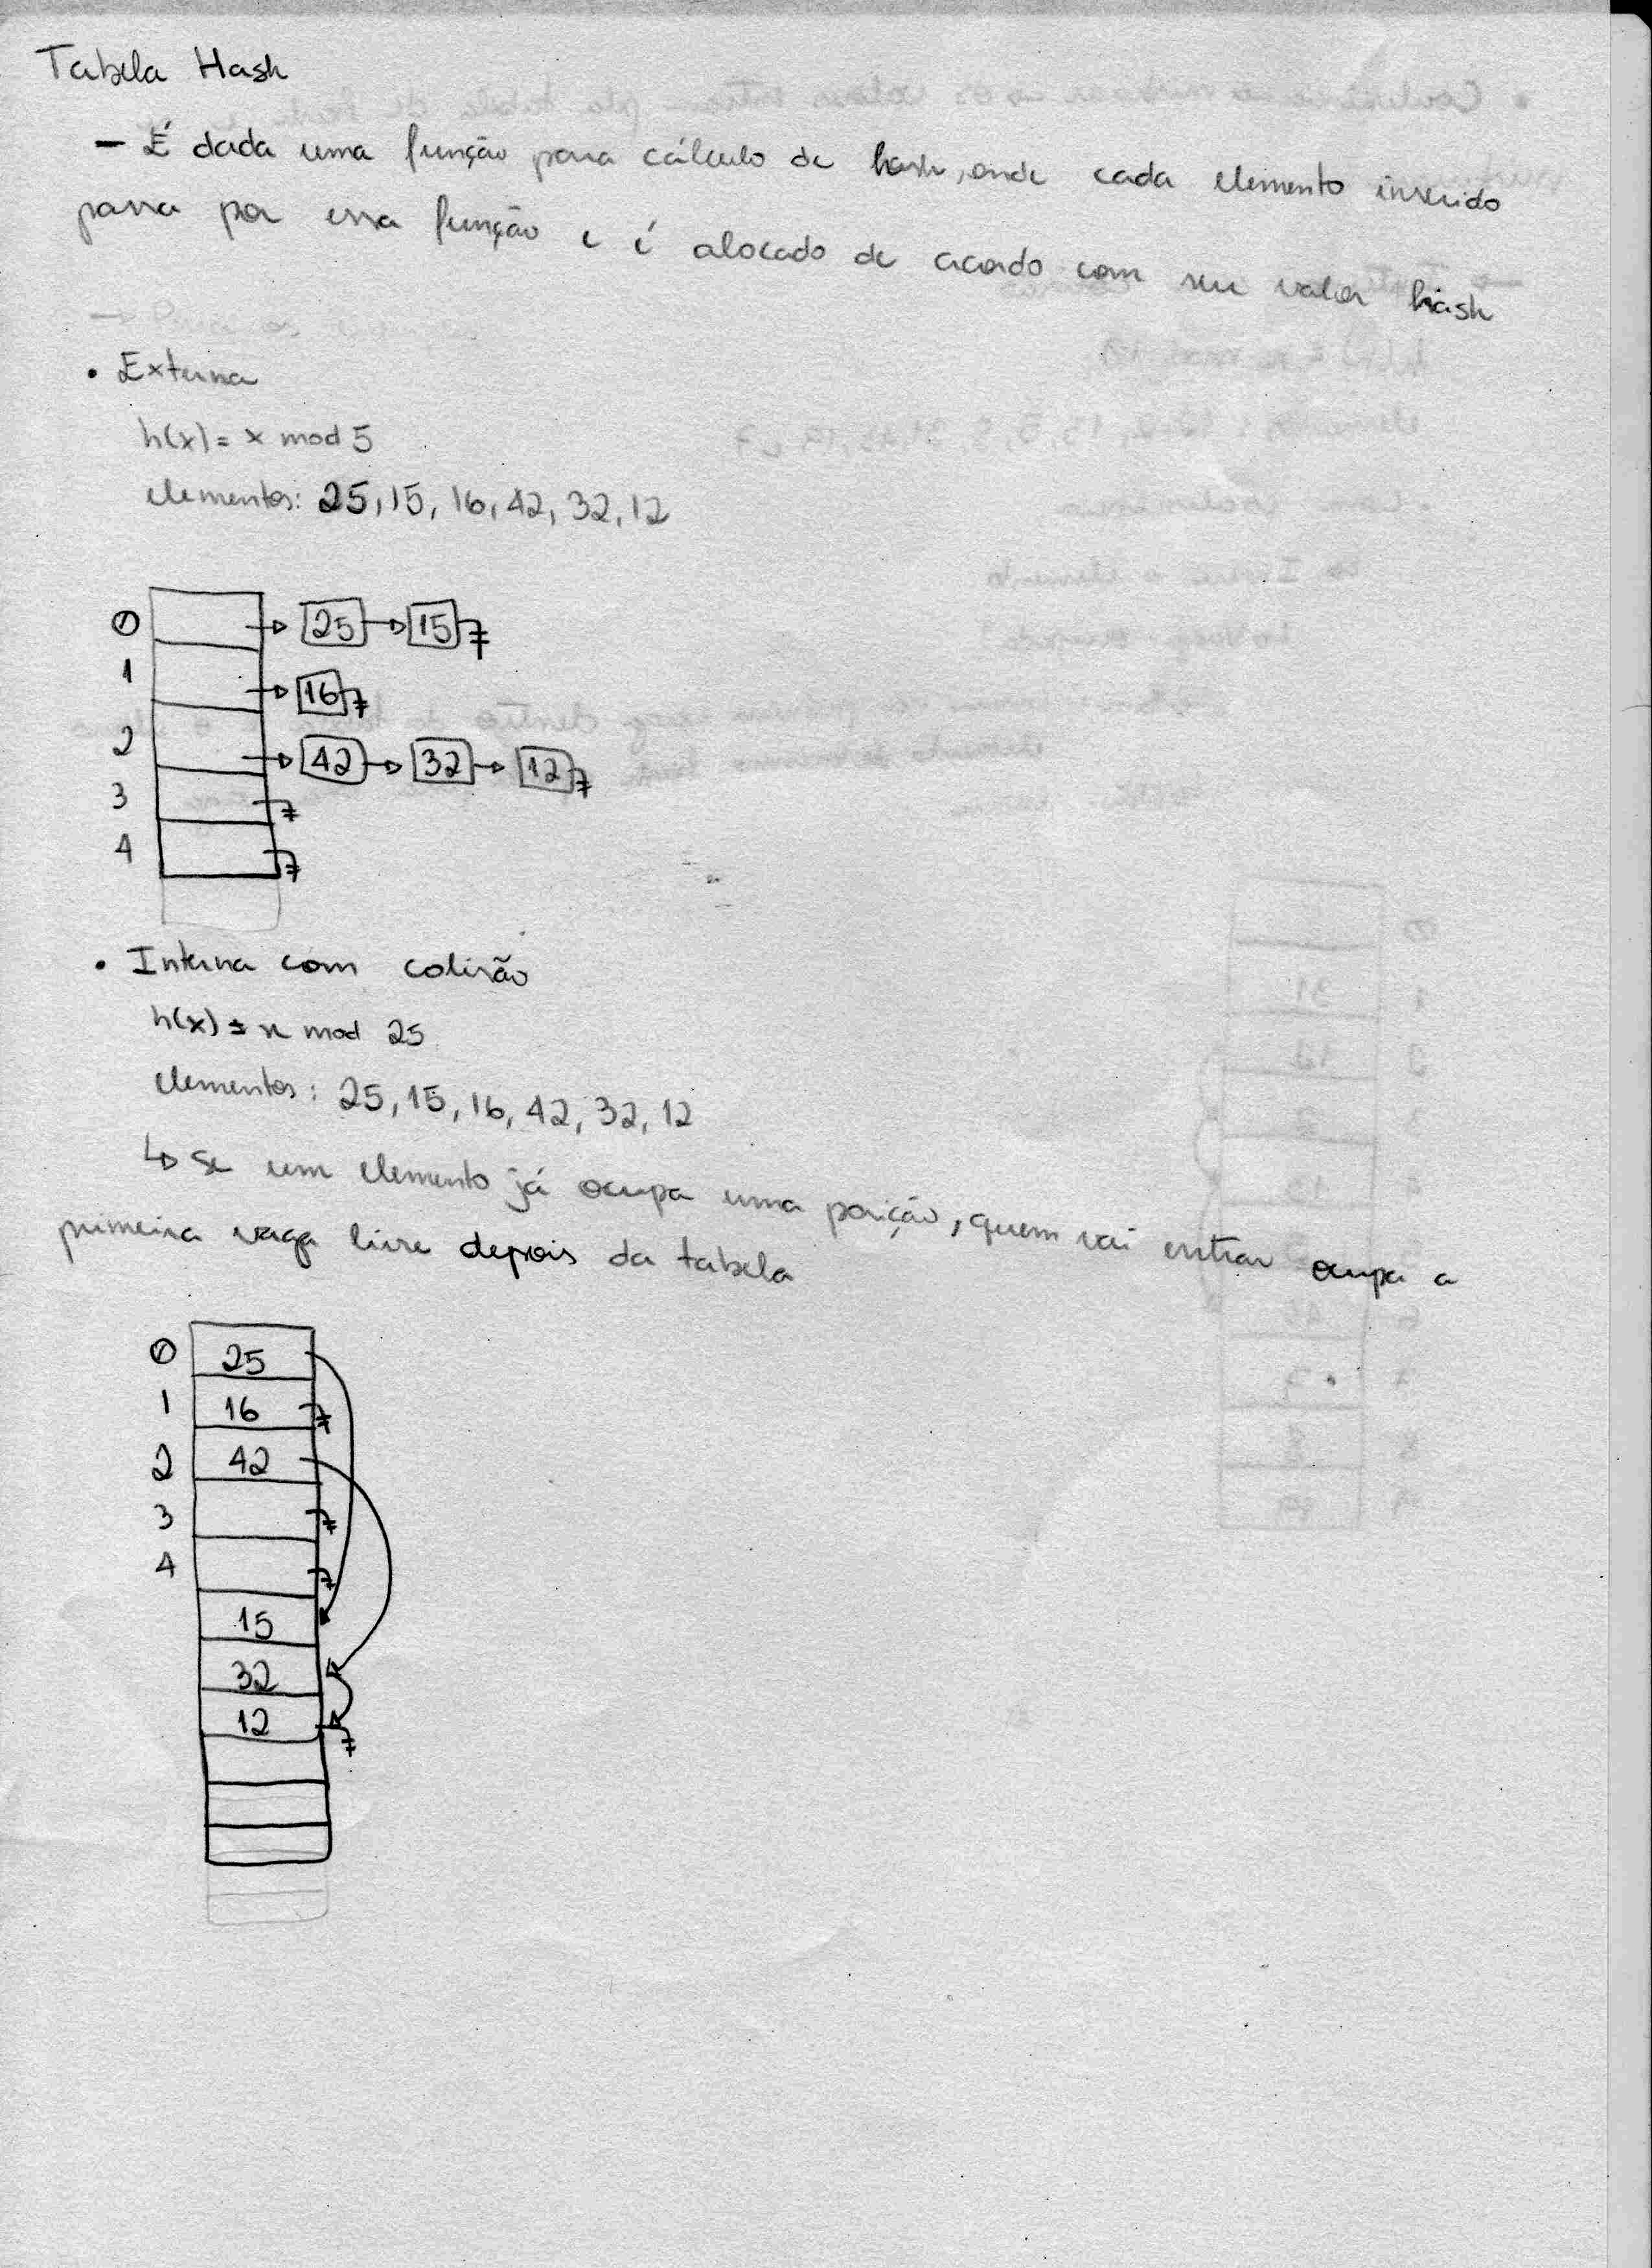 Tabela Hash
- É dada uma função para cálculo de hash, onde cada elemento inserido
passa por essa função e é alocado de acordo com seu valor hash
• Externa
h(x) = x mod 5
elementos: 25, 15, 16, 42, 32, 12
0 25 15
1 16
2 42 32 12
3
4
• Interna com colisão
h(x) = x mod 25
elementos: 25, 15, 16, 42, 32, 12
↳ se um elemento já ocupa uma posição, quem vai entrar ocupa a
primeira vaga livre depois da tabela
0 25
1 16
2 42
3
4
15
32
12